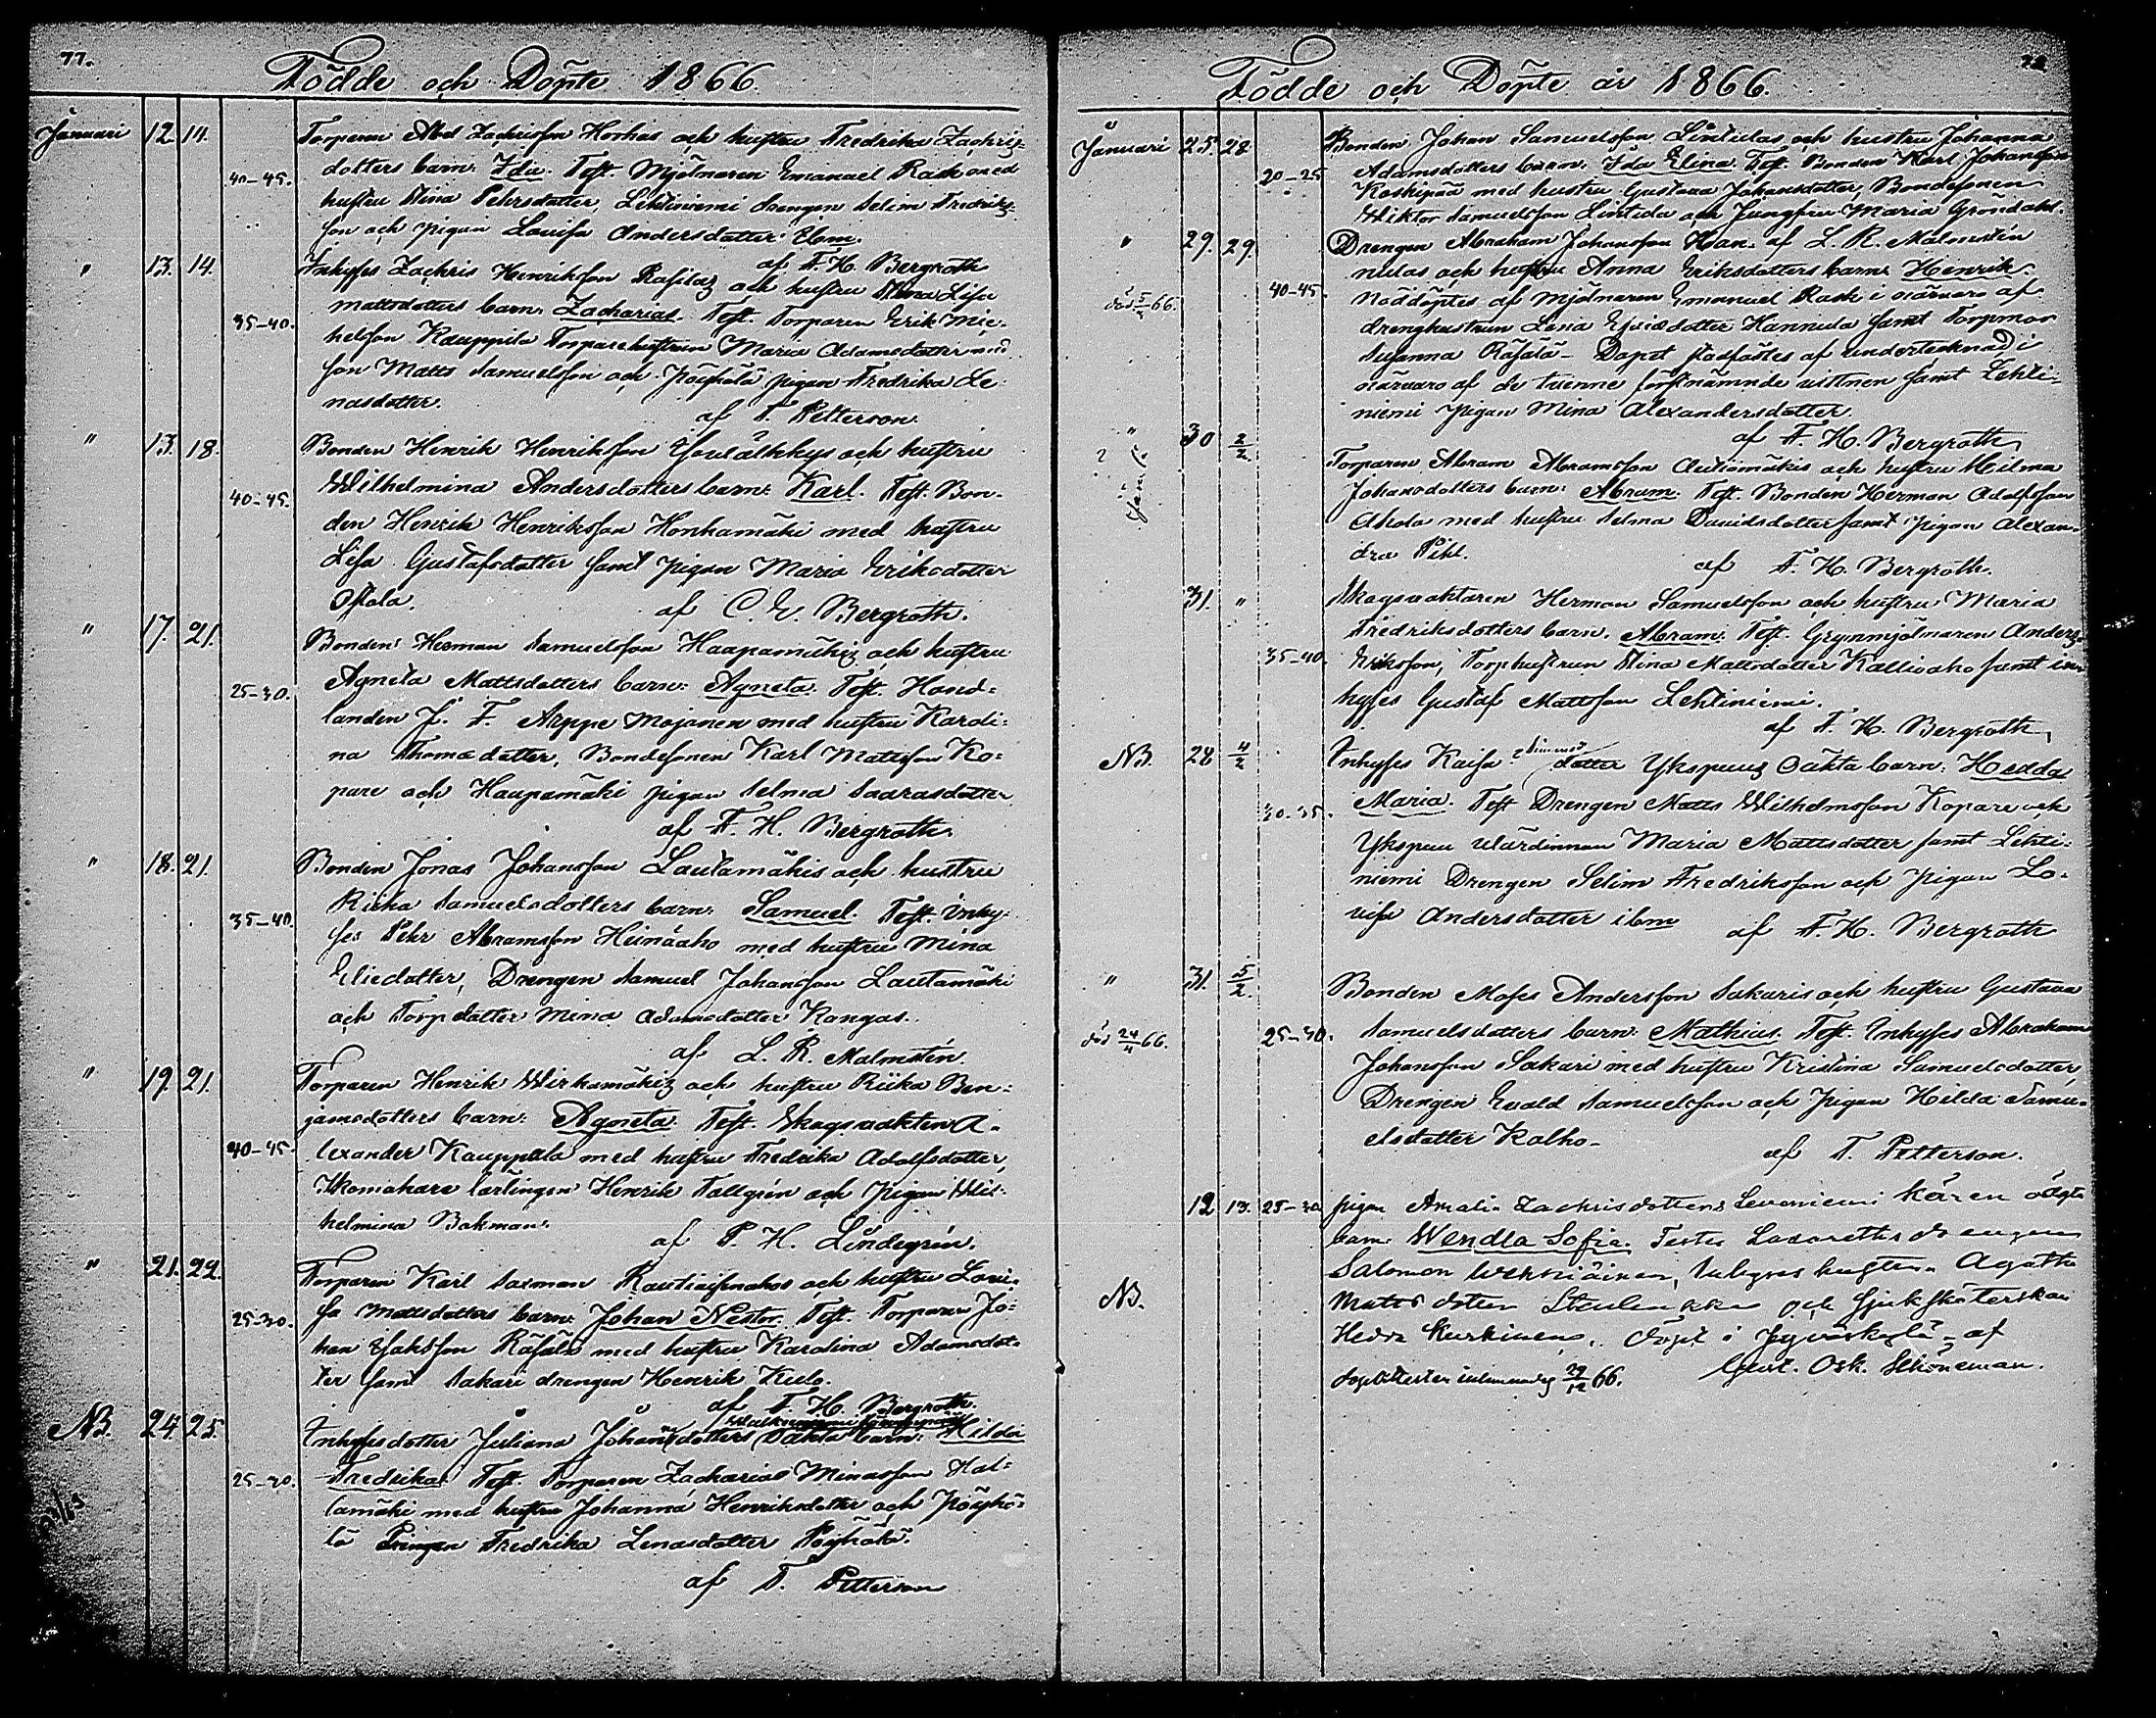 77.
Födde och Döpte 1866.
Januari 12 14. Torparen Abel Zachrisson Honkas och hustru Fredrika Zachris-
40-45. dotters barn: Ida. Test. Mjölnaren Emanuel Rask med
hustru Stina Pehrsdotter, Lehtiniemi drengen Selim Fredriks-
son och pigan Lovisa Andersdotter ibm.
af F. H. Bergroth
" 13. 14. Inhyses Zachris Henriksson och hustru Lisa
35-40. Mattsdotters barn: Zacharias. Test. Torparen Erik Mic-
helsson Kauppila Torparehustrun Maria Adamsdotter med
son Matts Samuelsson och Pöyhölä pigan Fredrika Le-
nasdotter.
af T. Petterson.
" 13. 18. Bonden Henrik Henriksson och hustru
40-45. Wilhelmina Andersdotters barn: Karl. Test. Bon-
den Henrik Henriksson Honkamäki med hustru
Lisa Gustafsdotter samt pigan Maria Eriksdotter
Ojala.
af C. E. Bergroth.
" 17. 21. Bonden Herman Samuelsson Haapamäkis och hustru
25-30. Agneta Mattsdotters barn: Agneta. Test. Hand-
landen J. F. Arppe Mojanen med hustru Karoli-
na Thomasdotter, Bondesonen Karl Mattsson Ko-
pare och Haapamäki pigan Selma Saarasdotter
af F. H. Bergroth.
" 18. 21. Bonden Jonas Johansson Lautamäkis och hustru
35-40. Riika Samuelsdotters barn: Samuel. Test. Inhy-
ses Pehr Abramsson Heinäaho med hustru Mina
Eliedotter, Drengen Samuel Johansson Lautamäki
och Torpdotter Mina Adamsdotter Kangas.
af L. R. Malmstén.
" 19. 21. Torparen Henrik Wirkamäkis och hustru Riika Ben-
jamsdotters barn: Agneta. Test. Skogsvakten A-
40-45 lexander Kauppila med hustru Fredrika Adolfsdotter,
Skomakare lärlingen Henrik Tallgrén och pigan Wil-
helmina Bakman.
af P. H. Lindegrén.
" 21. 22. Torparen Karl Saxman och hustru Lovi-
25-30. sa Mattsdotters barn: Johan Nestor. Test. Torparen Jo-
han Isaksson Räsälä med hustru Karolina Adamsdot-
ter samt Sakari drengen Henrik Kulo.
af F. H. Bergroth.
NB. 24. 25. Inhysesdotter Juliana Johansdotters oäkta barn: Hilda
25-30. Fredrika. Test. Torparen Zacharias Minasson Hal-
lamäki med hustru Johanna Henriksdotter och Pöyhö-
lä Pigan Fredrika Lenasdotter Pöyhölä.
af T. Petterson
Födde och Döpte år 1866.
Januari 25. 28 Bonden Johan Samuelsson Lintulas och hustru Johanna
20-25 Adamsdotters barn: Ida Elina. Test. Bonden Karl Johansson
Koskipää med hustru Gustava Johansdotter, Bondesonen
Wiktor Samuelsson Lintula och Jungfru Maria Gröndahl.
af L. R. Malmstén
" 29. 29. Drengen Abraham Johansson Han-
nulas och hustru Anna Eriksdotters barn: Henrik.
död 5/2 66. 40-45. Nöddöptes af mjölnaren Emanuel Rask i närvaro af
drenghustrun Lena Hannula samt Torpmor
Susanna Räsälä - Dopet stadfästes af undertecknad i
närvaro af de tvenne förstnämnde vittnen samt Lehti-
niemi pigan Mina Alexandersdotter.
af F. H. Bergroth
" 30 2/2 Torparen Abram Abramsson Autiomäkis och hustru Hilma
Johansdotters barn: Abram. Test. Bonden Herman Adolfsson
Ahola med hustru Selma Davidsdotter samt pigan Alexan-
dra Pihl.
af F. H. Bergroth.
31. " Skogsvaktaren Herman Samuelsson och hustru Maria
Fredriksdotters barn: Abram. Test. Grynmjölnaren Anders
35-40 Eriksson, Torphustrun Stina Mattsdotter Kallioaho samt in-
hyses Gustaf Mattsson Lehtiniemi.
af F. H. Bergroth,
NB. 28 4/2 Inhyses Kaisa dotter Ykspuus Oäkta barn: Hedda
30-35. Maria. Test Drengen Matts Wilhelmsson Kopare och
Ykspuu värdinnan Maria Mattsdotter samt Lehti-
niemi Drengen Selim Fredriksson och pigan Lo-
visa Andersdotter ibm
af F. H. Bergroth
" 31. 5/2. Bonden Moses Andersson Sakaris och hustru Gustava
död 24/4 66. 25-30. Samuelsdotters barn: Mathias. Test. Inhyses Abraham
Johansson Sakari med hustru Kristina Samuelsdotter,
Drengen Evald Samuelsson och Pigan Hilda Samu-
elsdotter Kalho-
af T. Petterson.
12 13. 25-30 pigan Amalia Zachrisdotters Levaniemi oägta
barn Wendla Sofia. Testes Lazaretts drengen
Salomon hustrun Agatha
NB. Matts dotter och Sjuksköterskan
Hedda Kurkinen. Döpt i Jyväskylä - af
29/12 66. Gust. Osk. Schöneman.